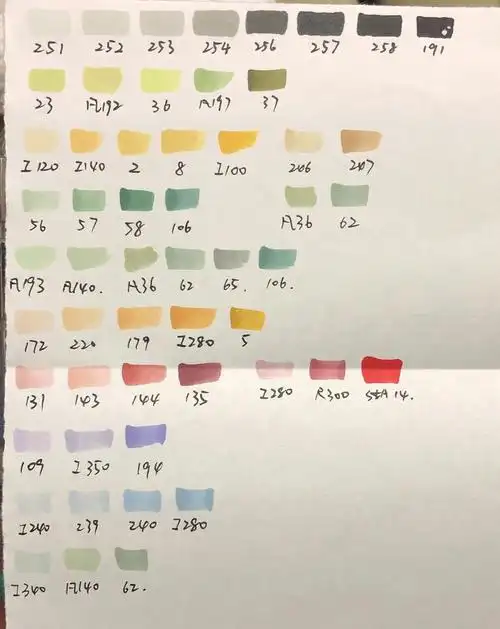 251 252 253 254 256 257 258 191
23 A192 36 A197 37
I120 I140 2 8 I100 206 207
56 57 58 106 A36 62
A193 A140. A36 62 65. 106.
172 220 179 I280 5
131 143 144 135 I280 R300 14.
109 I350 194
I240 239 240 I280
I340 A140 62.